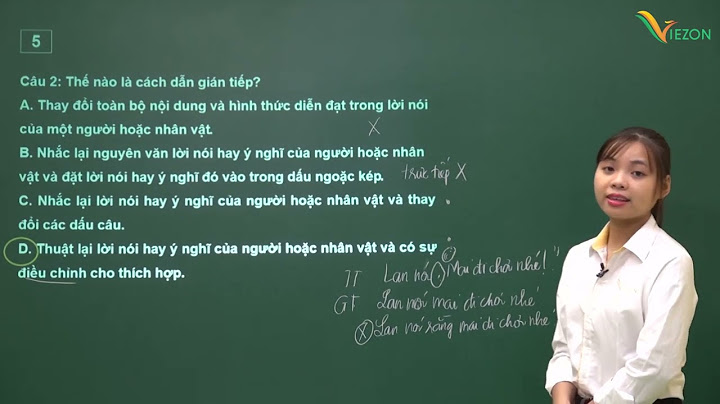 VIEZON
5
Câu 2: Thế nào là cách dẫn gián tiếp?
A. Thay đổi toàn bộ nội dung và hình thức diễn đạt trong lời nói
của một người hoặc nhân vật.
X
B. Nhắc lại nguyên văn lời nói hay ý nghĩ của người hoặc nhân
vật và đặt lời nói hay ý nghĩ đó vào trong dấu ngoặc kép. trực tiếp X
C. Nhắc lại lời nói hay ý nghĩ của người hoặc nhân vật và thay
đổi các dấu câu.
D. Thuật lại lời nói hay ý nghĩ của người hoặc nhân vật và có sự
điều chỉnh cho thích hợp.
TT Lan nói: "Mai đi chơi nhé!"
GT Lan nói mai đi chơi nhé
X Lan nói rằng mai đi chơi nhé